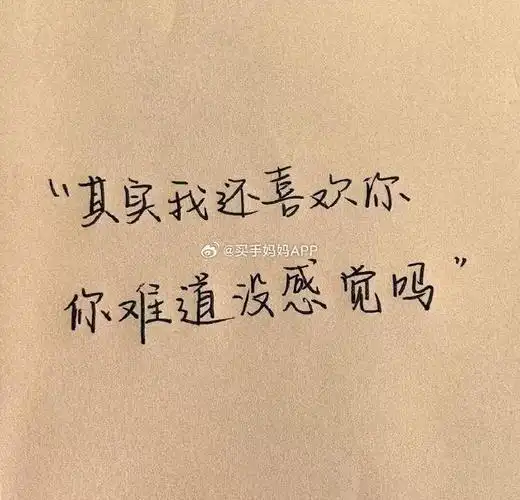 “其实我还喜欢你
@买手妈妈APP
你难道没感觉吗”